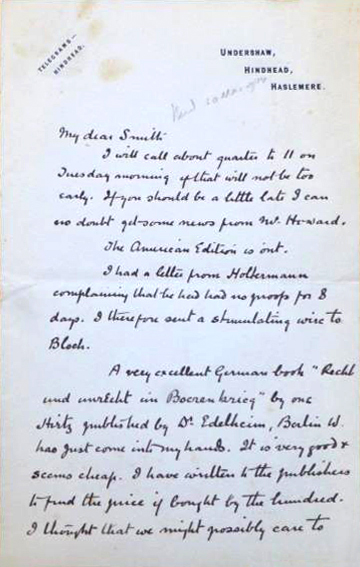 TELEGRAMS—
HINDHEAD.
UNDERSHAW,
HINDHEAD,
HASLEMERE.
My dear Smith
I will call about quarter to 11 on
Tuesday morning if that will not be too
early. If you should be a little late I can
no doubt get some news from Mr Howard.
The American Edition is out.
I had a letter from Holtermann
complaining that he had had no proofs for 8
days. I therefore sent a stimulating wire to
Bloch.
A very excellent German book "Recht
und unrecht im Boerenkrieg" by one
Hirtz published by Dr Edelheim, Berlin W.
has just come into my hands. It is very good &
seems cheap. I have written to the publishers
to find the price if bought by the hundred.
I thought that we might possibly care to